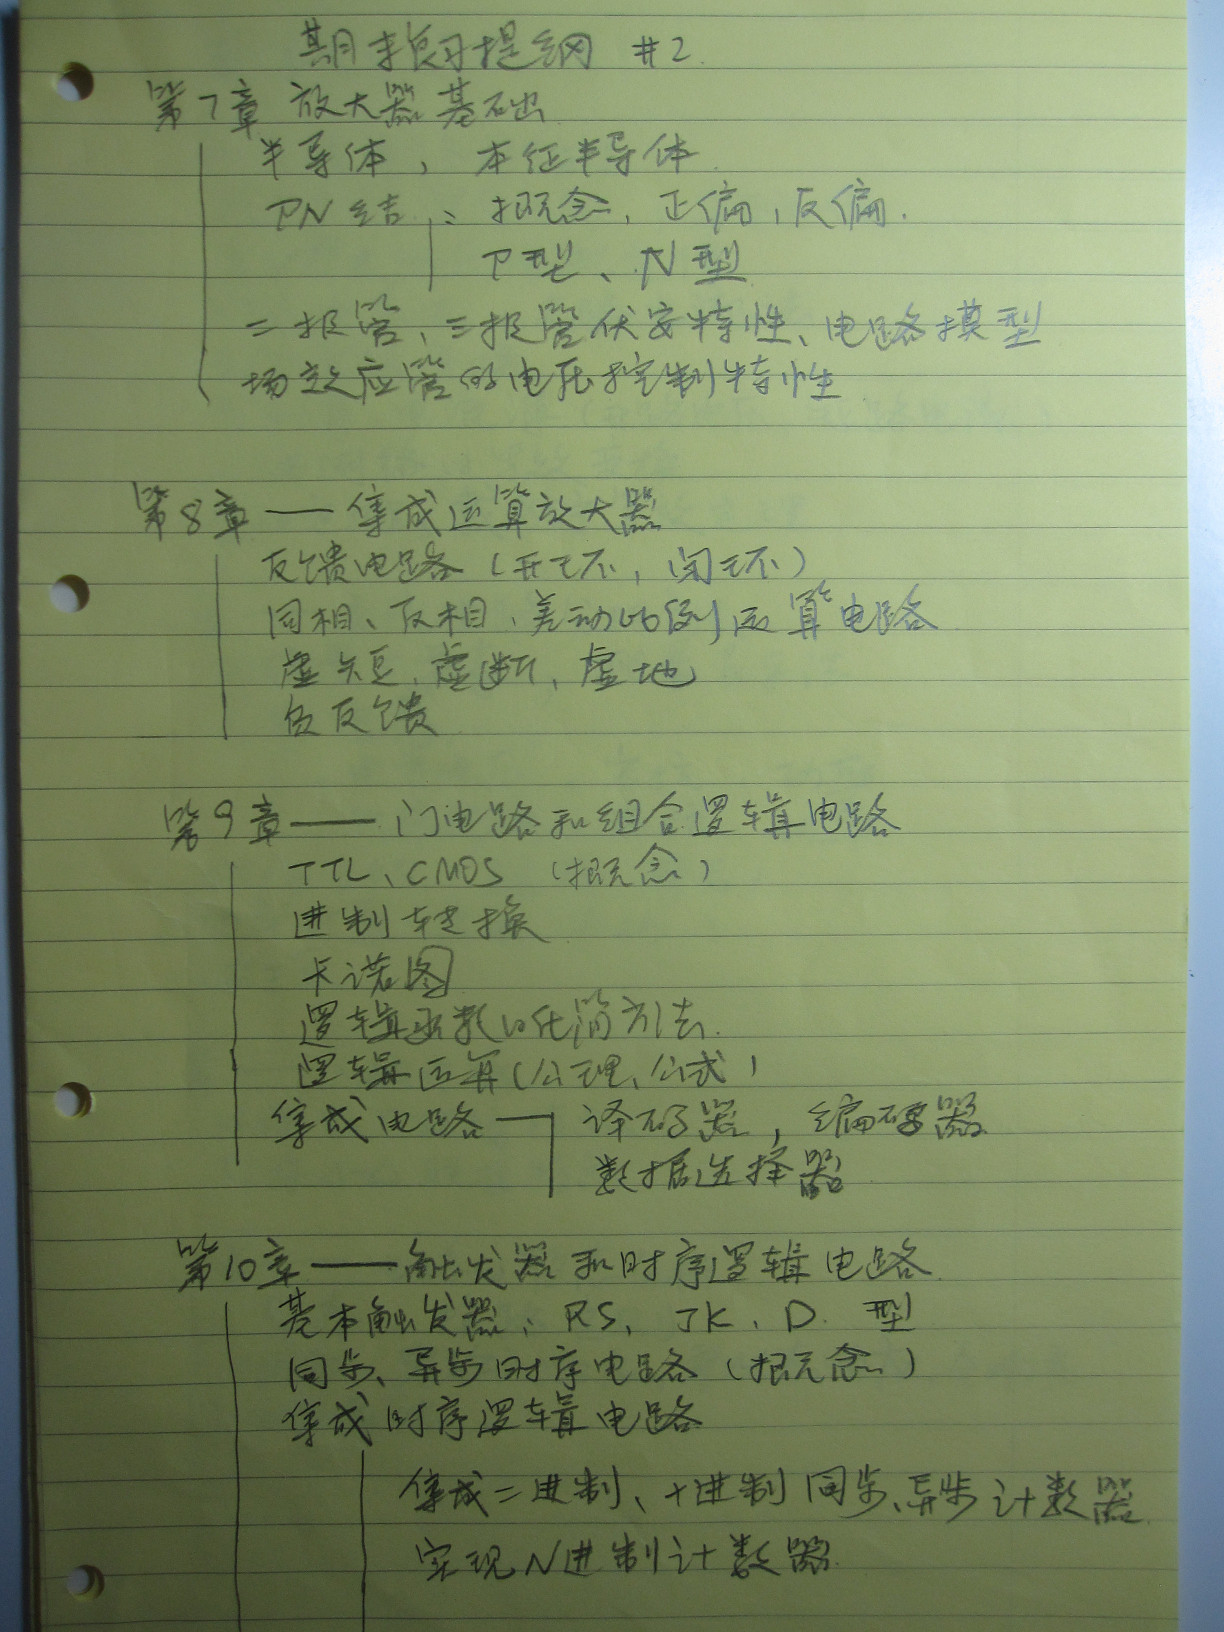 期末复习提纲 #2
第7章 放大器基础
半导体, 本征半导体
PN结: 概念, 正偏, 反偏.
P型、N型
二极管、三极管伏安特性、电路模型
场效应管的电压控制特性
第8章——集成运算放大器
反馈电路(开环, 闭环)
同相、反相、差动比例运算电路
虚短、虚断、虚地
负反馈
第9章——门电路和组合逻辑电路
TTL、CMOS (概念)
进制转换
卡诺图
逻辑函数的化简方法.
逻辑运算(公理、公式)
集成电路 译码器, 编码器
数据选择器
第10章——触发器和时序逻辑电路
基本触发器: RS、JK、D 型
同步、异步时序电路(概念)
集成时序逻辑电路
集成二进制、十进制同步、异步计数器
实现N进制计数器